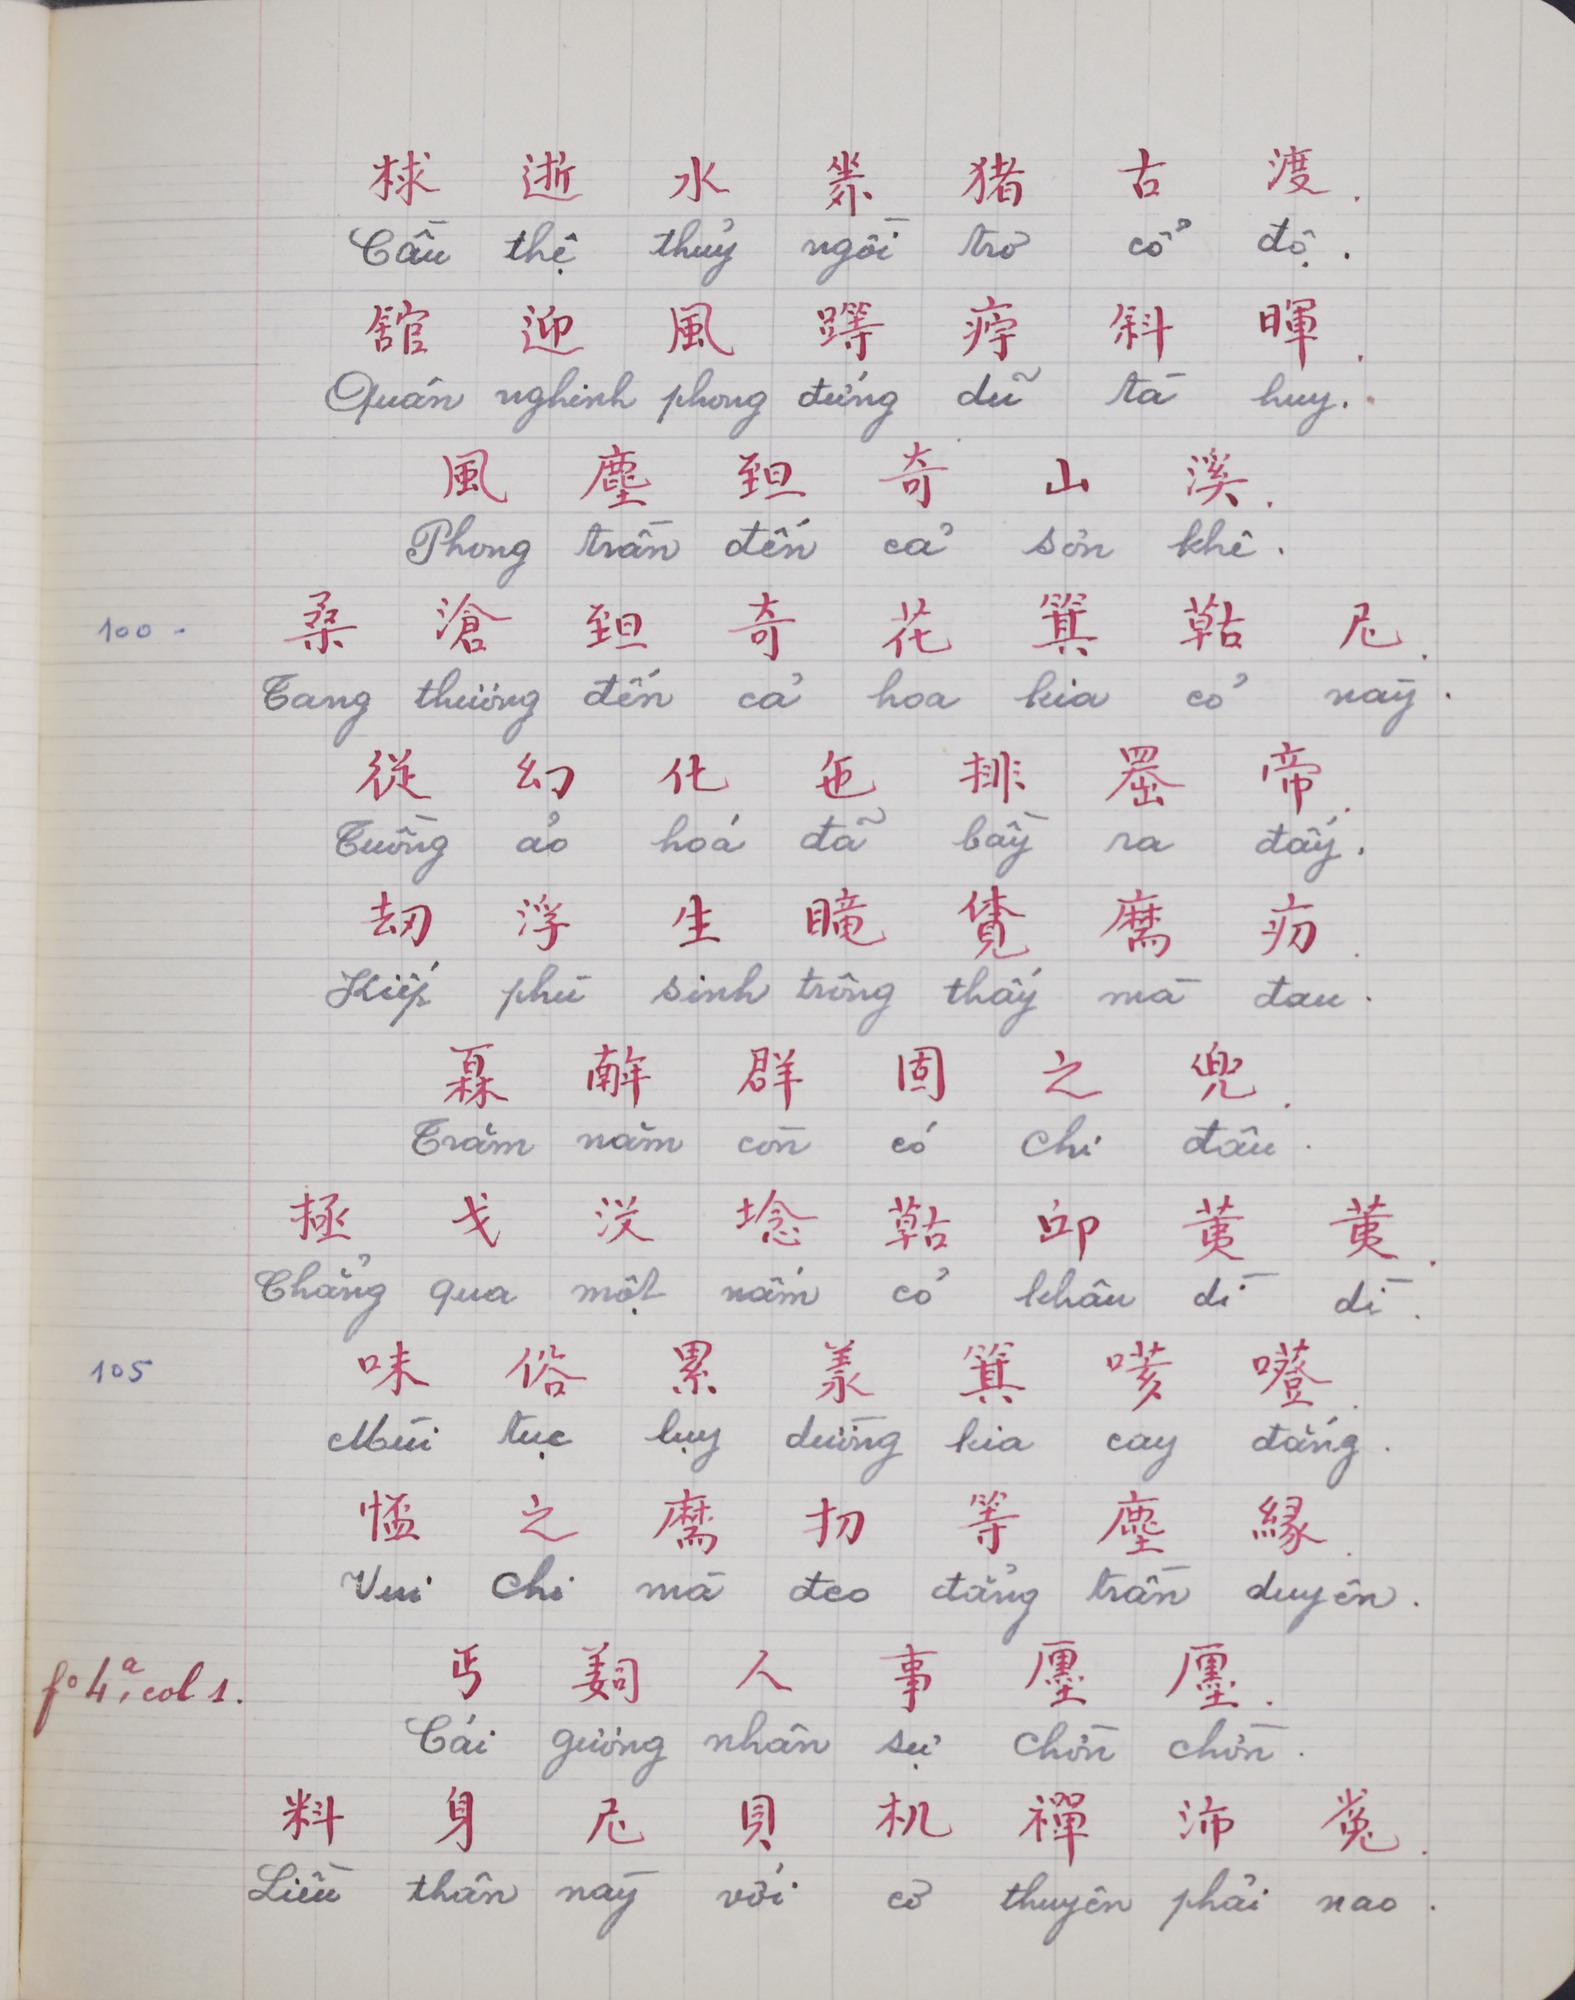 梂 逝 水 猪 古 渡.
Cầu thệ thủy ngồi trơ cổ độ.
舘 迎 風 𨅸 斜 暉.
Quán nghinh phong đứng dũ tà huy.
風 塵 𦥃 奇 山 溪.
Phong trần đến cả sơn khê.
100 -
桑 滄 𦥃 奇 花 箕 𦹵 尼.
Tang thương đến cả hoa kia cỏ này.
從 幻 化 㐌 排 𦋦 帝.
Tuồng ảo hoá đã bầy ra đấy.
刼 浮 生 𥉫 𧡊
Kiếp phù sinh trông thấy mà đau.
𤾓 𢆥 群 固 之 兜.
Trăm năm còn có chi đâu.
拯 戈 没 埝 𦹵 邱 荑 荑.
Chẳng qua một nấm cỏ khâu dì dì.
105
味 俗 累 羕 箕
Mùi tục lụy dường kia cay đắng.
𢝙 之 扨 等 塵 緣.
Vui chi mà đeo đẳng trần duyên.
fo 4a, col 1.
丐 人 事
Cái gương nhân sự chờn chờn.
料 身 尼 貝 机 禪 沛
Liều thân này với cơ thuyền phải nao.